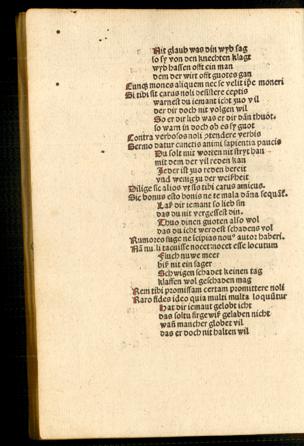 Nit glaub was din wyb sag
so sy von den knechten klagt
wyb hassen offt ein man
dem der wirt offt guotes gan
Cunq̃ mones aliquem nec se velit ip̃e moneri
Si tibi sit carus noli desistere ceptis
warnestu iemant icht zuo vil
der dir doch nit volgen wil
So er dir lieb was er dir dãn thuot
so warn in doch ob es sy guot
Contra verbosos noli ꝯtendere verbis
Sermo datur cunctis animi sapientia paucis
Du solt mit worten nit stryt han
mit dem der vil reden kan
Jeder ist zuo reden bereit
vnd wenig zu der weißheit
Dilige sic alios vt sis tibi carus amicus.
Sic bonus esto bonis ne te mala dãna sequãt̃.
Laß dir iemant so lieb sin
das du nit vergessest din.
Thuo dinen guoten also wol
das du icht werdest schadens vol
Rumores fuge ne icipias nouꝰ autor haberi.
Nã nulli tacuisse nocet nocet esse locutum
Fliuch nuwe meer
biß nit ein sager
Schwigen schadet keinen tag
klaffen wol geschaden mag
Rem tibi promissam certam promittere noli
Raro fides ideo quia multi multa loquũtur
Hat dir iemant gelobt icht
das soltu fürgewiß geloben nicht
wañ mancher globet vil
das er doch nit halten wil